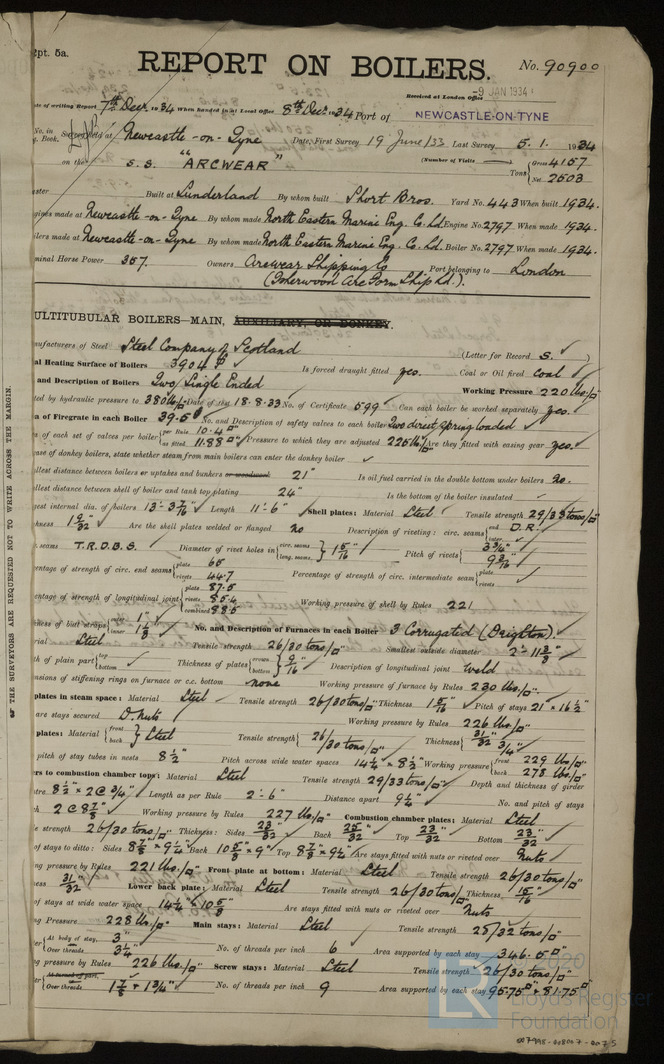 Rpt. 5a.
REPORT ON BOILERS.
No. 90900
Received at London Office -9 JAN 1934
ate of writing Report 7th Decr 1934 When handed in at Local Office 8th Decr 1934 Port of NEWCASTLE-ON-TYNE
No. in Survey held at Newcastle-on-Tyne Date, First Survey 19 June/33 Last Survey 5.1.1934
g. Book.
on the S.S. "ARCWEAR" (Number of Visits ) Tons { Gross 4157 Net 2503
aster Built at Sunderland By whom built Short Bros. Yard No. 443 When built 1934.
gines made at Newcastle-on-Tyne By whom made North Eastern Marine Eng. Co. Ld. Engine No. 2797 When made 1934.
ilers made at Newcastle-on-Tyne By whom made North Eastern Marine Eng. Co. Ld. Boiler No. 2797 When made 1934.
minal Horse Power 357. Owners Arcwear Shipping Co Port belonging to London
(Isherwood Arc Form Ship Ld.).
ULTITUBULAR BOILERS—MAIN, AUXILIARY, OR DONKEY.
nufacturers of Steel Steel Company of Scotland (Letter for Record S. )
al Heating Surface of Boilers 3904 Is forced draught fitted yes. Coal or Oil fired coal
and Description of Boilers Two Single Ended Working Pressure 220 lbs/□
ted by hydraulic pressure to 380 lbs/□ Date of test 18.8.33 No. of Certificate 599 Can each boiler be worked separately yes.
a of Firegrate in each Boiler 39.5 No. and Description of safety valves to each boiler Two direct spring loaded
a of each set of valves per boiler { per Rule 10.4 □" as fitted 11.88 □" Pressure to which they are adjusted 225 lb/□" Are they fitted with easing gear yes.
ase of donkey boilers, state whether steam from main boilers can enter the donkey boiler
llest distance between boilers or uptakes and bunkers or woodwork 21" Is oil fuel carried in the double bottom under boilers no.
llest distance between shell of boiler and tank top plating 24" Is the bottom of the boiler insulated
gest internal dia. of boilers 13'-3 7/16" Length 11'-6" Shell plates: Material Steel Tensile strength 29/33 tons/□"
kness 1 9/32" Are the shell plates welded or flanged no Description of riveting: circ. seams { end D.R. inter.
. seams T.R.D.B.S. Diameter of rivet holes in { circ. seams long. seams } 1 5/16" Pitch of rivets { 3 3/4" 9 3/16"
entage of strength of circ. end seams { plate 65 rivets 44.7 Percentage of strength of circ. intermediate seam { plate rivets
entage of strength of longitudinal joint { plate 87.5 rivets 85.4 combined 88.5 Working pressure of shell by Rules 221
kness of butt straps { outer 1" inner 1 1/8" No. and Description of Furnaces in each Boiler 3 Corrugated (Deighton).
erial Steel Tensile strength 26/30 tons/□" Smallest outside diameter 2'-11 3/8"
th of plain part { top bottom Thickness of plates { crown bottom } 9/16" Description of longitudinal joint Weld
ensions of stiffening rings on furnace or c.c. bottom none Working pressure of furnace by Rules 230 lbs./□
plates in steam space: Material Steel Tensile strength 26/30 tons/□" Thickness 1 5/16" Pitch of stays 21" × 16 1/2"
are stays secured D. Nuts Working pressure by Rules 226 lbs/□"
plates: Material { front back } Steel Tensile strength { 26/30 tons/□" Thickness { 31/32" 3/4"
pitch of stay tubes in nests 8 1/2" Pitch across wide water spaces 14 1/4" × 8 1/2" Working pressure { front 229 lbs/□" back 278 lbs/□"
ers to combustion chamber tops: Material Steel Tensile strength 29/33 tons/□" Depth and thickness of girder
ntre 8 1/2" × 2 @ 3/4" Length as per Rule 2'-6" Distance apart 9 1/4" No. and pitch of stays
h 2 @ 8 7/8" Working pressure by Rules 227 lbs/□" Combustion chamber plates: Material Steel
le strength 26/30 tons/□" Thickness: Sides 23/32" Back 25/32 Top 23/32" Bottom 23/32"
of stays to ditto: Sides 8 7/8" × 9 1/4" Back 10 5/8" × 9" Top 8 7/8" × 9 1/4" Are stays fitted with nuts or riveted over Nuts
ng pressure by Rules 221 lbs/□" Front plate at bottom: Material Steel Tensile strength 26/30 tons/□"
ness 31/32" Lower back plate: Material Steel Tensile strength 26/30 tons/□" Thickness 15/16"
of stays at wide water space 14 1/4" × 10 5/8" Are stays fitted with nuts or riveted over Nuts
ng Pressure 228 lbs./□" Main stays: Material Steel Tensile strength 28/32 tons/□"
ter { At body of stay, 3" Over threads 3 1/4" No. of threads per inch 6 Area supported by each stay 346.5 □"
ng pressure by Rules 226 lbs./□" Screw stays: Material Steel Tensile strength 26/30 tons/□"
ter { At turned off part, Over threads 1 7/8" + 1 3/4" No. of threads per inch 9 Area supported by each stay 95.75 □" + 81.75 □"
OF THE SURVEYORS ARE REQUESTED NOT TO WRITE ACROSS THE MARGIN.
2020
Lloyd's Register
Foundation
007998-008007-0075